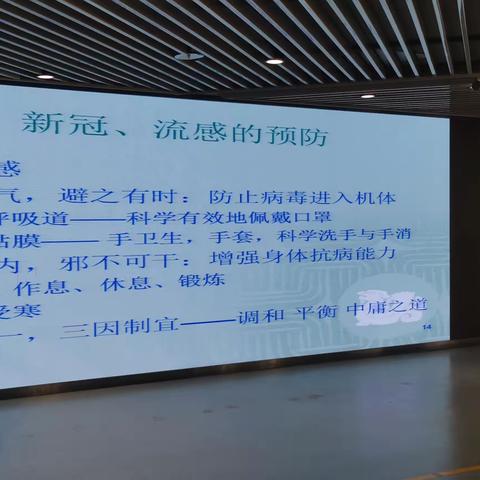 新冠、流感的预防
感
气，避之有时：防止病毒进入机体
呼吸道——科学有效地佩戴口罩
粘膜—— 手卫生，手套，科学洗手与手消
内，邪不可干：增强身体抗病能力
作息、休息、锻炼
受寒
一，三因制宜——调和 平衡 中庸之道
14